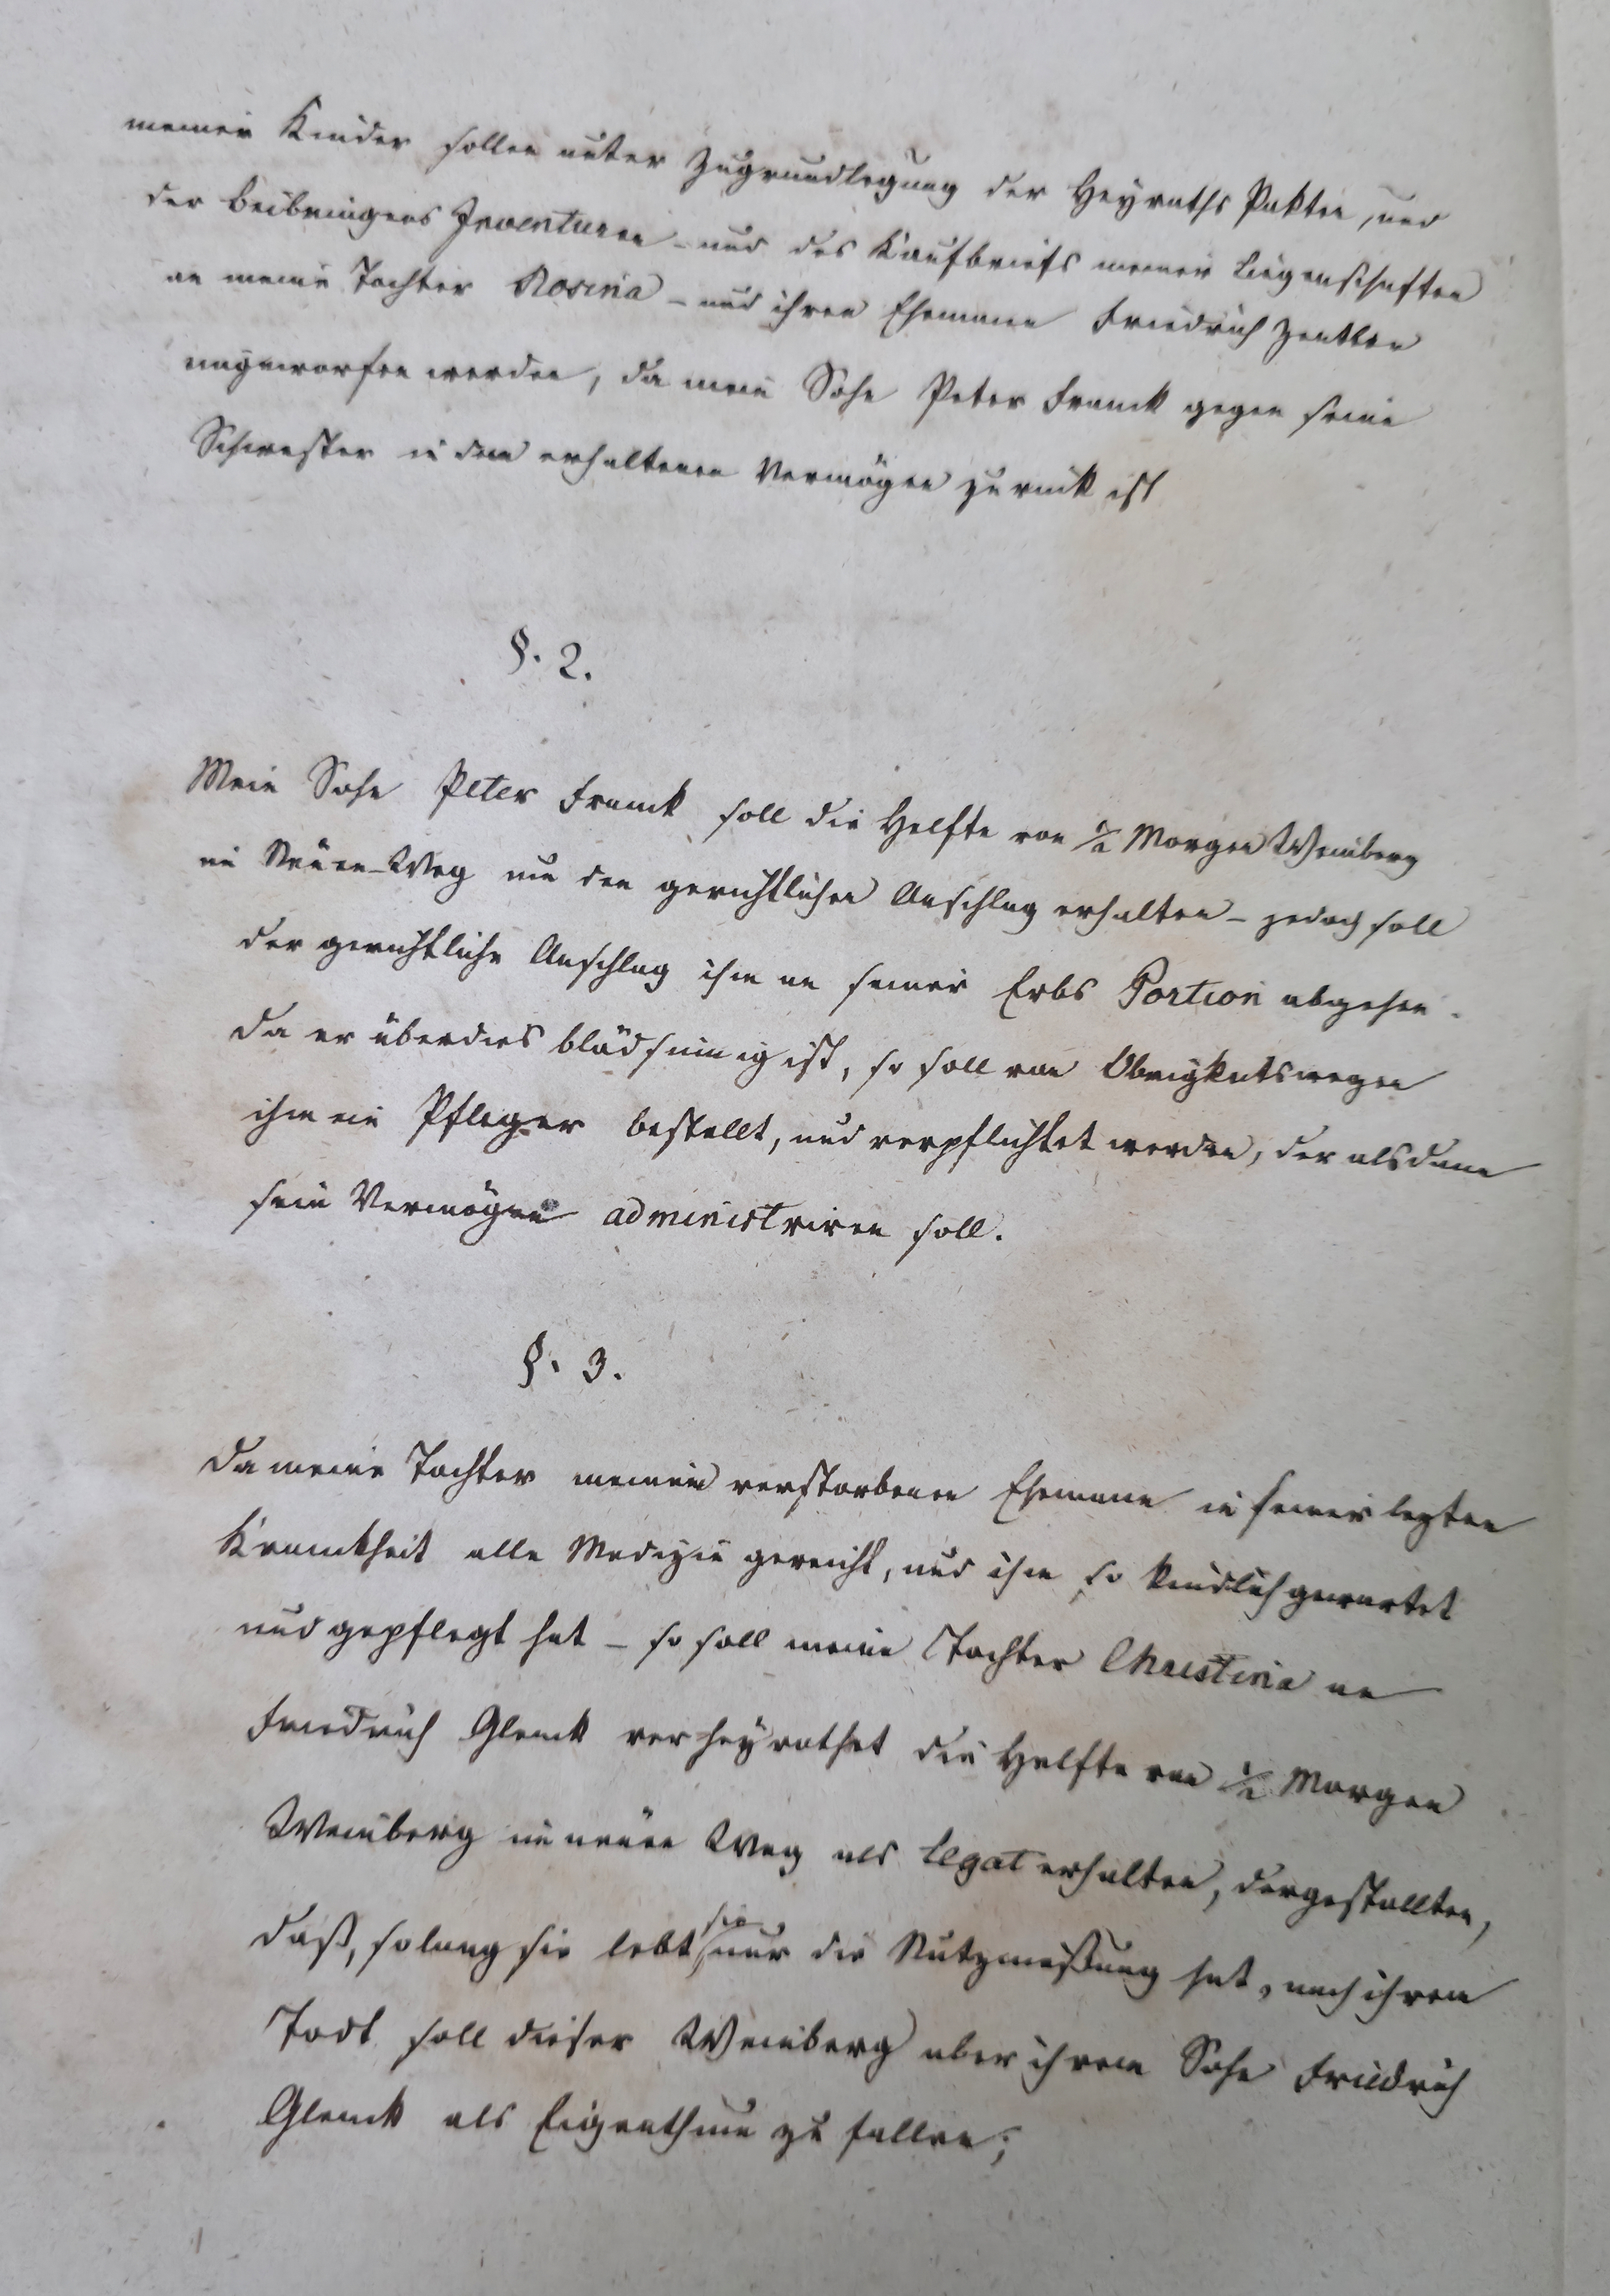 meiner Kinder sollen unter Zugrundlegung der Heyraths Pakten, und
der Beibringens Inventuren - und des Kaufbriefs meiner Liegenschaften
an meine Tochter Rosina - und ihren Ehemann Friedrich
ausgeworfen werden, da mein Sohn Peter Franck gegen seine
Schwester in dem erhaltenen Vermögen zurück ist
§. 2.
Mein Sohn Peter Franck soll die Helfte von ½ Morgen Weinberg
im Neuen-Weg um den gerichtlichen Anschlag erhalten - jedoch soll
der gerichtliche Anschlag ihm an seiner Erbs Portion abgehen.
Da er überdies blödsinnig ist, so soll von Obrigkeitswegen
ihm ein Pfleger bestellt, und verpflichtet werden, der alsdann
sein Vermögen administriren soll.
§. 3.
Da meine Tochter meinem verstorbenen Ehemann in seiner lezten
Krankheit alle Medizin gereicht, und ihm so kindlich gewartet
und gepflegt hat - so soll meine Tochter Christina an
Friedrich Glenck verheyrathet die Helfte von ½ Morgen
Weinberg im neuen Weg als Legat erhalten, dergestallten,
daß, solang sie lebt sie nur die Nutznießung hat, nach ihrem
Todt soll dieser Weinberg aber ihrem Sohn Friedrich
Glenck als Eigenthum zu fallen;